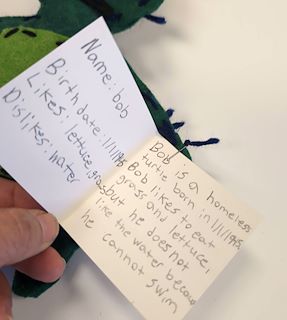 Name: bob
Birth date: 1/1/1915
Likes: lettuce, grass
Dislikes: water
Bob is a homeless
turtle born in 1/1/1915.
Bob likes to eat
grass and lettuce,
but he does not
like the water because
he cannot swim